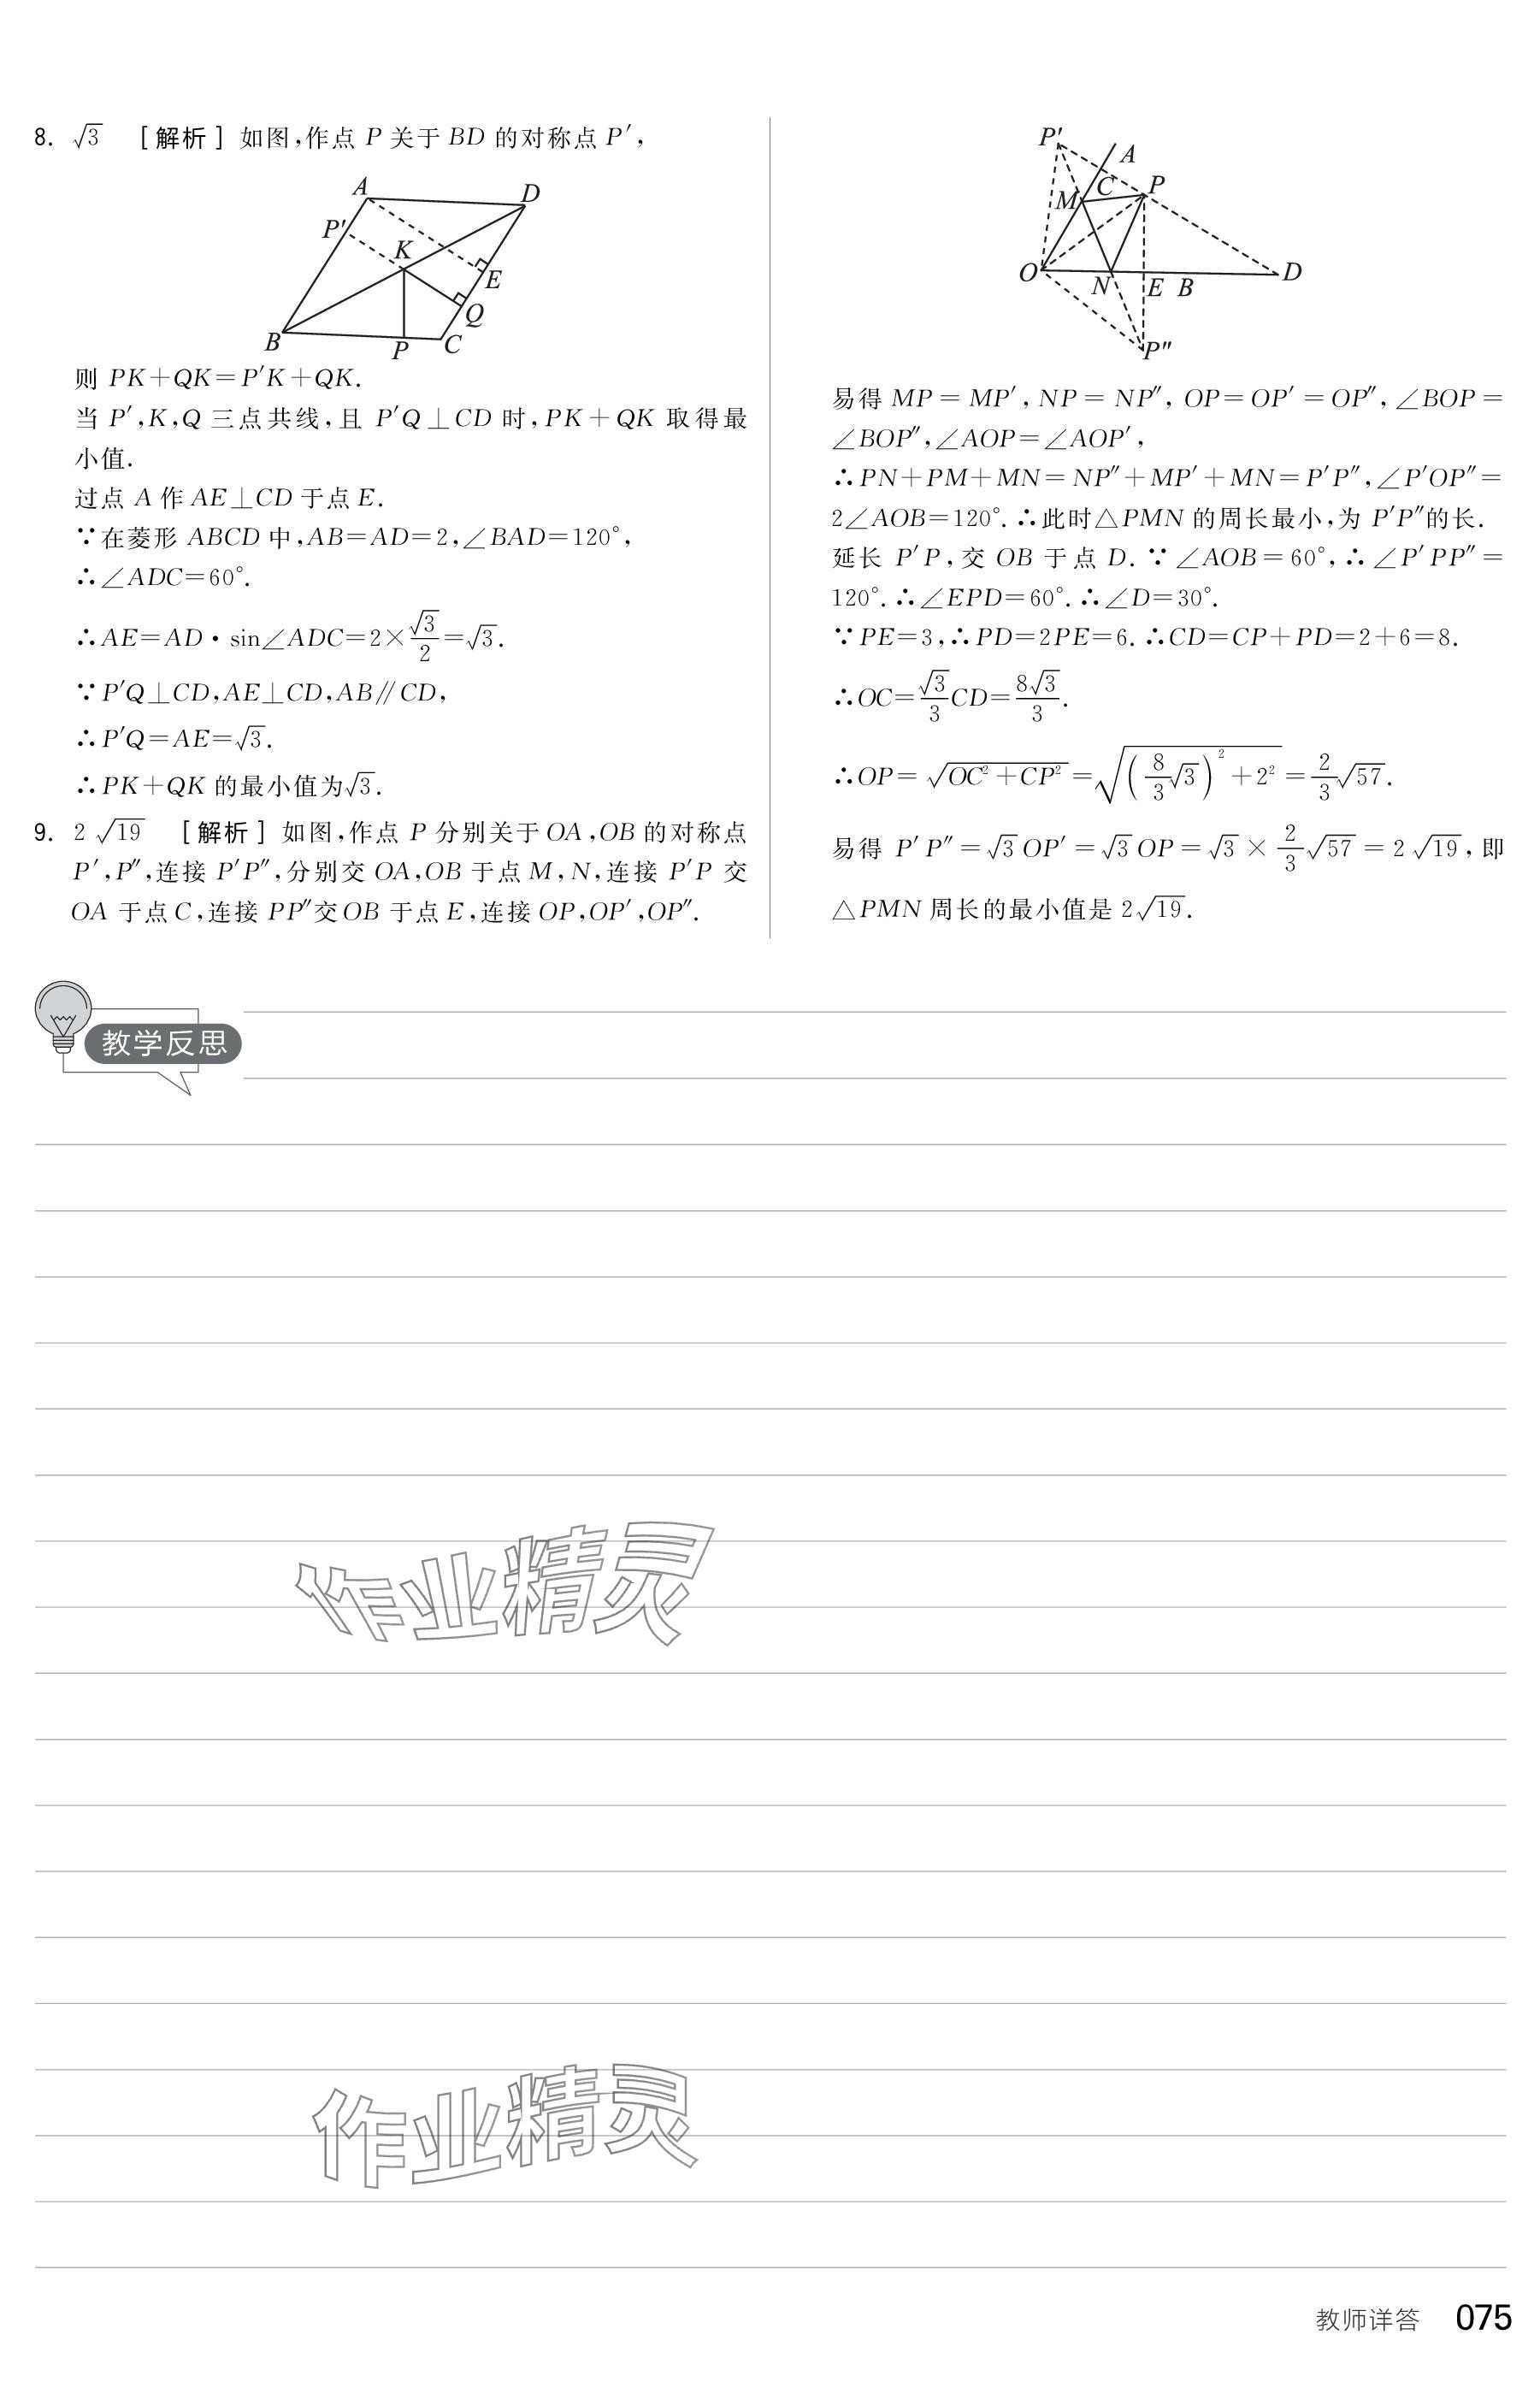 8. √3 [解析] 如图,作点 P 关于 BD 的对称点 P′,
A
D
P′
K
E
Q
B
P
C
则 PK+QK=P′K+QK.
当 P′,K,Q 三点共线,且 P′Q⊥CD 时,PK+QK 取得最
小值.
过点 A 作 AE⊥CD 于点 E.
∵在菱形 ABCD 中,AB=AD=2,∠BAD=120°,
∴∠ADC=60°.
∴AE=AD·sin∠ADC=2×√3/2=√3.
∵P′Q⊥CD,AE⊥CD,AB∥CD,
∴P′Q=AE=√3.
∴PK+QK 的最小值为√3.
9. 2√19 [解析] 如图,作点 P 分别关于 OA,OB 的对称点
P′,P″,连接 P′P″,分别交 OA,OB 于点 M,N,连接 P′P 交
OA 于点 C,连接 PP″交 OB 于点 E,连接 OP,OP′,OP″.
P′
A
C
P
M
O
N
E
B
D
P″
易得 MP=MP′,NP=NP″,OP=OP′=OP″,∠BOP=
∠BOP″,∠AOP=∠AOP′,
∴PN+PM+MN=NP″+MP′+MN=P′P″,∠P′OP″=
2∠AOB=120°.∴此时△PMN 的周长最小,为 P′P″的长.
延长 P′P,交 OB 于点 D.∵∠AOB=60°,∴∠P′PP″=
120°.∴∠EPD=60°.∴∠D=30°.
∵PE=3,∴PD=2PE=6.∴CD=CP+PD=2+6=8.
∴OC=√3/3CD=8√3/3.
∴OP=√(OC²+CP²)=√((8/3√3)²+2²)=2/3√57.
易得 P′P″=√3OP′=√3OP=√3×2/3√57=2√19,即
△PMN 周长的最小值是 2√19.
教学反思
作业精灵
作业精灵
教师详答 075